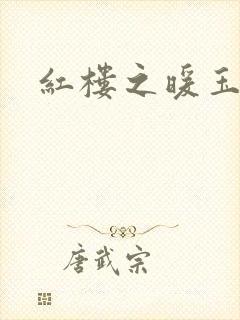 紅樓之暖玉
唐武宗